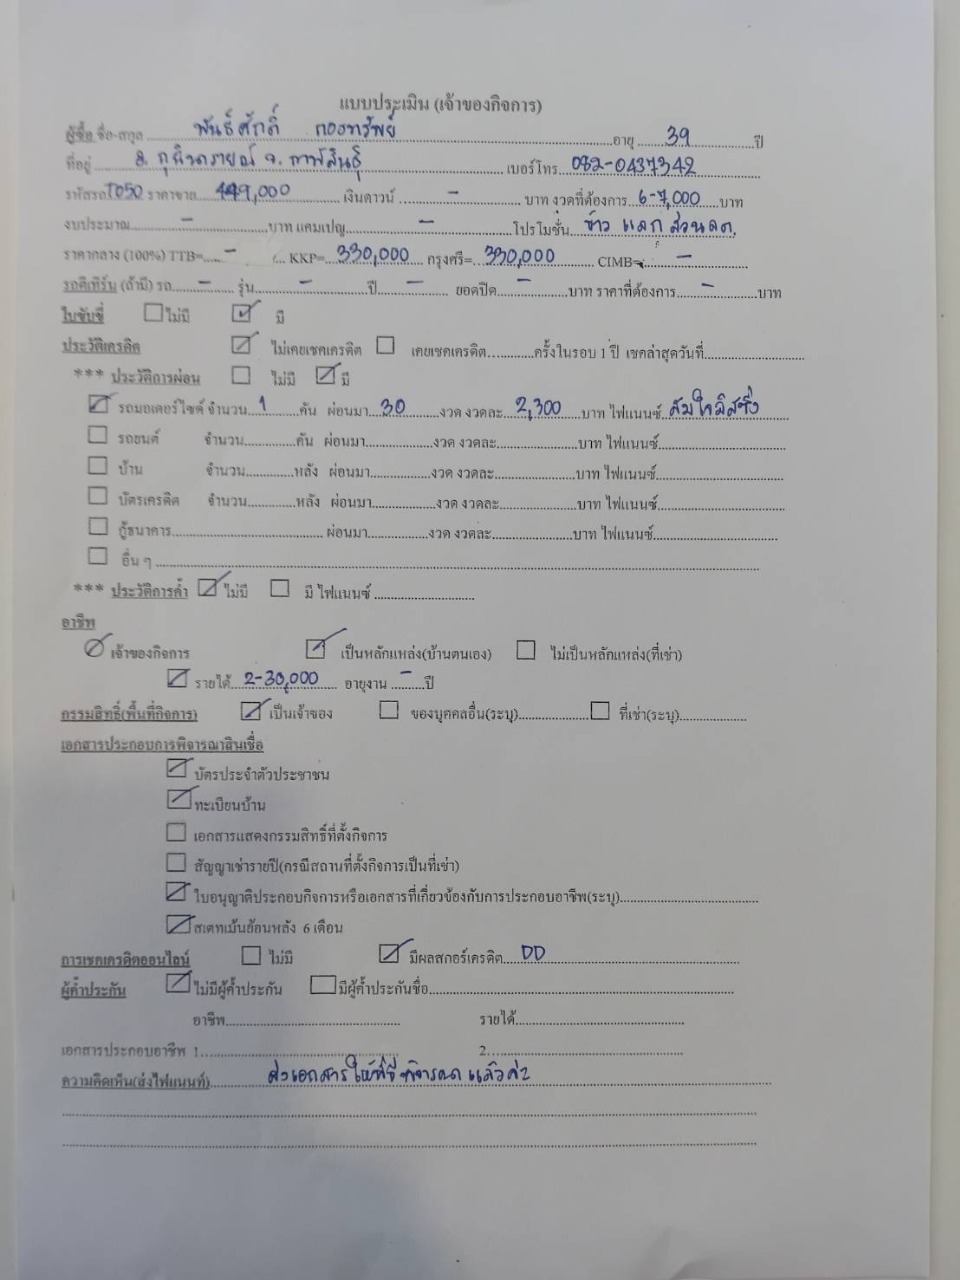 แบบประเมิน (เจ้าของกิจการ)
ผู้ซื้อ ชื่อ-สกุล พันธ์ศักดิ์ กองทรัพย์ อายุ 39 ปี
ที่อยู่ อ. กุฉินารายณ์ จ. กาฬสินธุ์ เบอร์โทร 082-0437342
รหัสรถ T050 ราคาขาย 449,000 เงินดาวน์ - บาท งวดที่ต้องการ 6-7,000 บาท
งบประมาณ - บาท แคมเปญ - โปรโมชั่น ข้าว แลก ส่วนลด.
ราคากลาง (100%) TTB= - KKP= 330,000 กรุงศรี= 330,000 CIMB= -
รถตีเทิร์น (ถ้ามี) รถ - รุ่น - ปี - ยอดปิด - บาท ราคาที่ต้องการ - บาท
ใบขับขี่ ไม่มี มี
ประวัติเครดิต ไม่เคยเชคเครดิต เคยเชคเครดิต ครั้งในรอบ 1 ปี เชคล่าสุดวันที่
*** ประวัติการผ่อน ไม่มี มี
รถมอเตอร์ไซค์ จำนวน 1 คัน ผ่อนมา 30 งวด งวดละ 2,300 บาท ไฟแนนซ์ สมใจลิสซิ่ง
รถยนต์ จำนวน คัน ผ่อนมา งวด งวดละ บาท ไฟแนนซ์
บ้าน จำนวน หลัง ผ่อนมา งวด งวดละ บาท ไฟแนนซ์
บัตรเครดิต จำนวน หลัง ผ่อนมา งวด งวดละ บาท ไฟแนนซ์
กู้ธนาคาร ผ่อนมา งวด งวดละ บาท ไฟแนนซ์
อื่น ๆ
*** ประวัติการค้ำ ไม่มี มี ไฟแนนซ์
อาชีพ
เจ้าของกิจการ เป็นหลักแหล่ง(บ้านตนเอง) ไม่เป็นหลักแหล่ง(ที่เช่า)
รายได้ 2-30,000 อายุงาน - ปี
กรรมสิทธิ์(พื้นที่กิจการ) เป็นเจ้าของ ของบุคคลอื่น(ระบุ) ที่เช่า(ระบุ)
เอกสารประกอบการพิจารณาสินเชื่อ
บัตรประจำตัวประชาชน
ทะเบียนบ้าน
เอกสารแสดงกรรมสิทธิ์ที่ตั้งกิจการ
สัญญาเช่ารายปี(กรณีสถานที่ตั้งกิจการเป็นที่เช่า)
ใบอนุญาติประกอบกิจการหรือเอกสารที่เกี่ยวข้องกับการประกอบอาชีพ(ระบุ)
สเตทเม้นย้อนหลัง 6 เดือน
การเชคเครดิตออนไลน์ ไม่มี มีผลสกอร์เครดิต DD
ผู้ค้ำประกัน ไม่มีผู้ค้ำประกัน มีผู้ค้ำประกันชื่อ
อาชีพ รายได้
เอกสารประกอบอาชีพ 1. 2.
ความคิดเห็น(ส่งไฟแนนท์) ส่งเอกสารให้ พิจารณา แล้ว